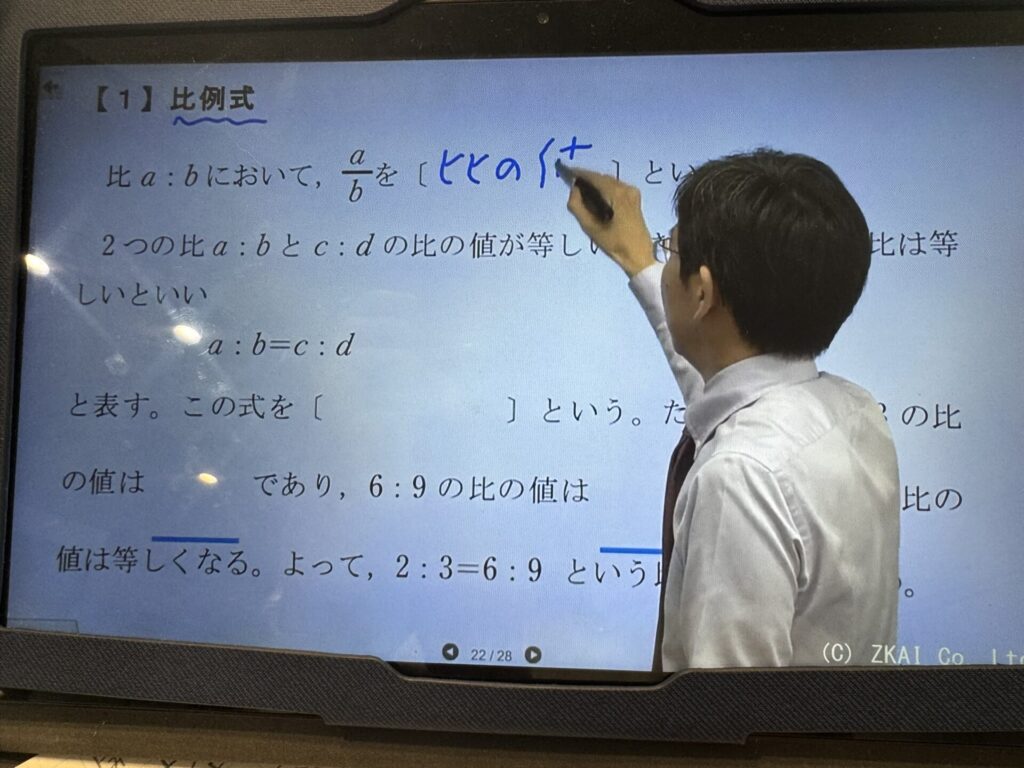 【1】比例式
比 a : b において, a/b を〔比の 〕とい
2つの比 a : b と c : d の比の値が等し 比は等
しいといい
a : b=c : d
と表す。この式を〔 〕という。た の比
の値は であり, 6 : 9 の比の値は 比の
値は等しくなる。よって, 2 : 3=6 : 9 という 。
22 / 28
(C) ZKAI Co. Ltd